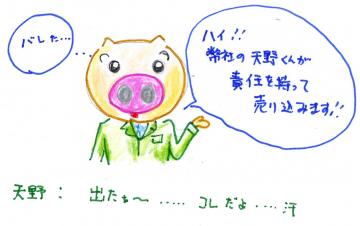 バレた…
ハイ!!
弊社の天野くんが
責任を持って
売り込みます!!
天野： 出たぁ〜 ‥‥‥ コレだよ ‥‥ 汗